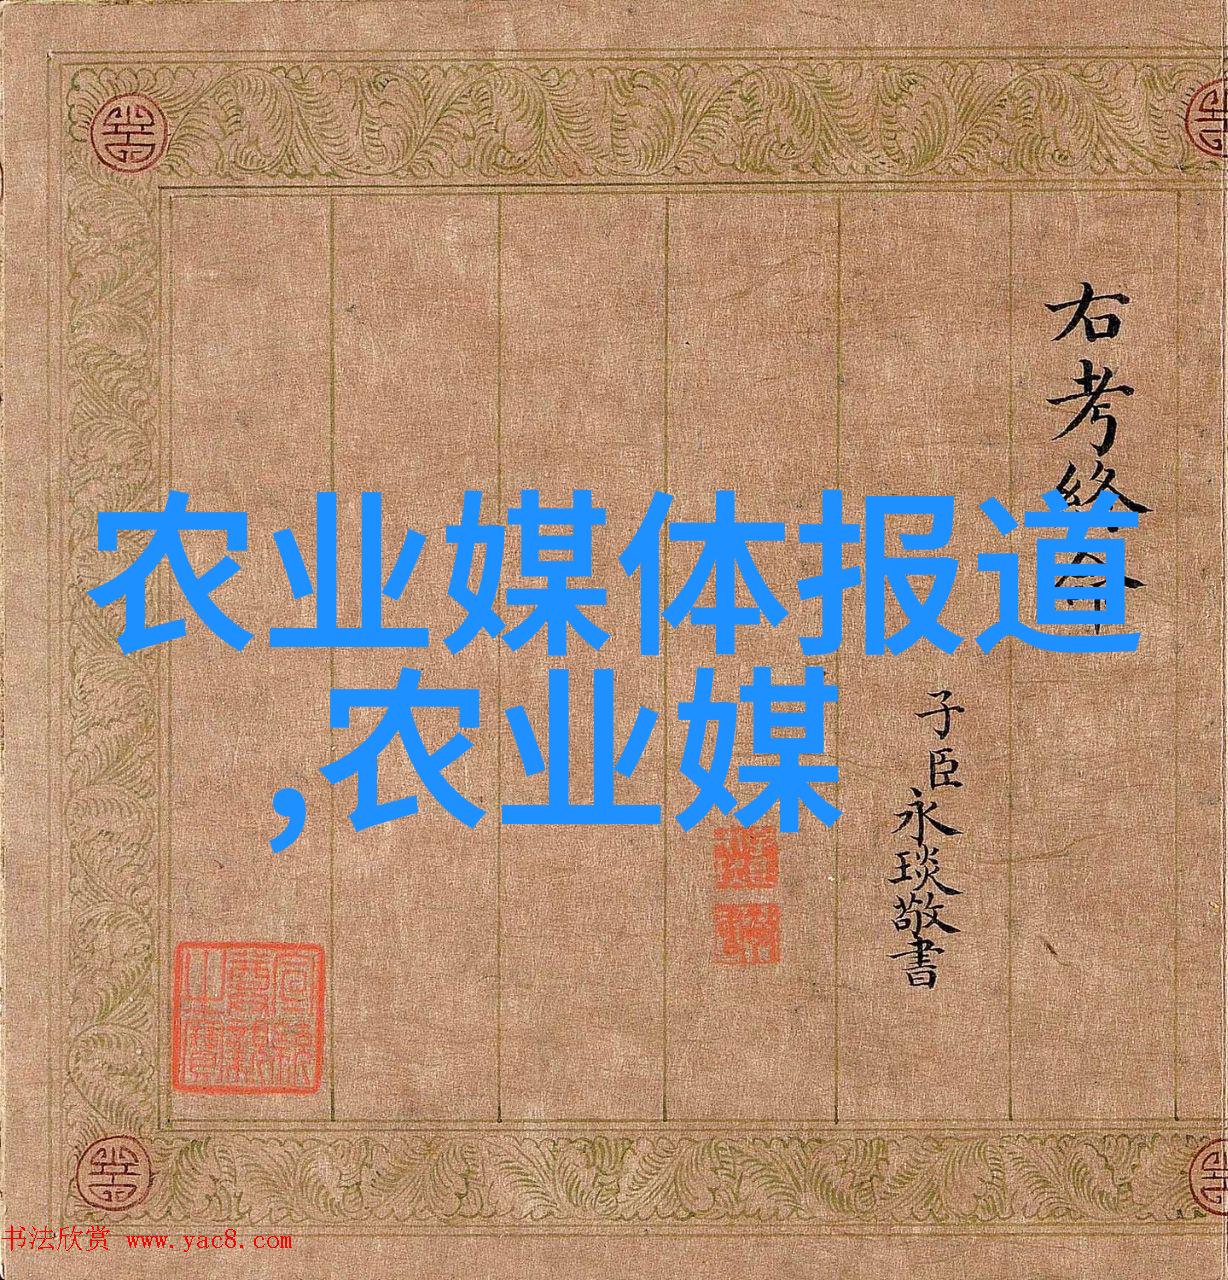 右考終命
子臣永琰敬書
农业媒体报道
,农业媒
书法欣赏 www.yac8.com